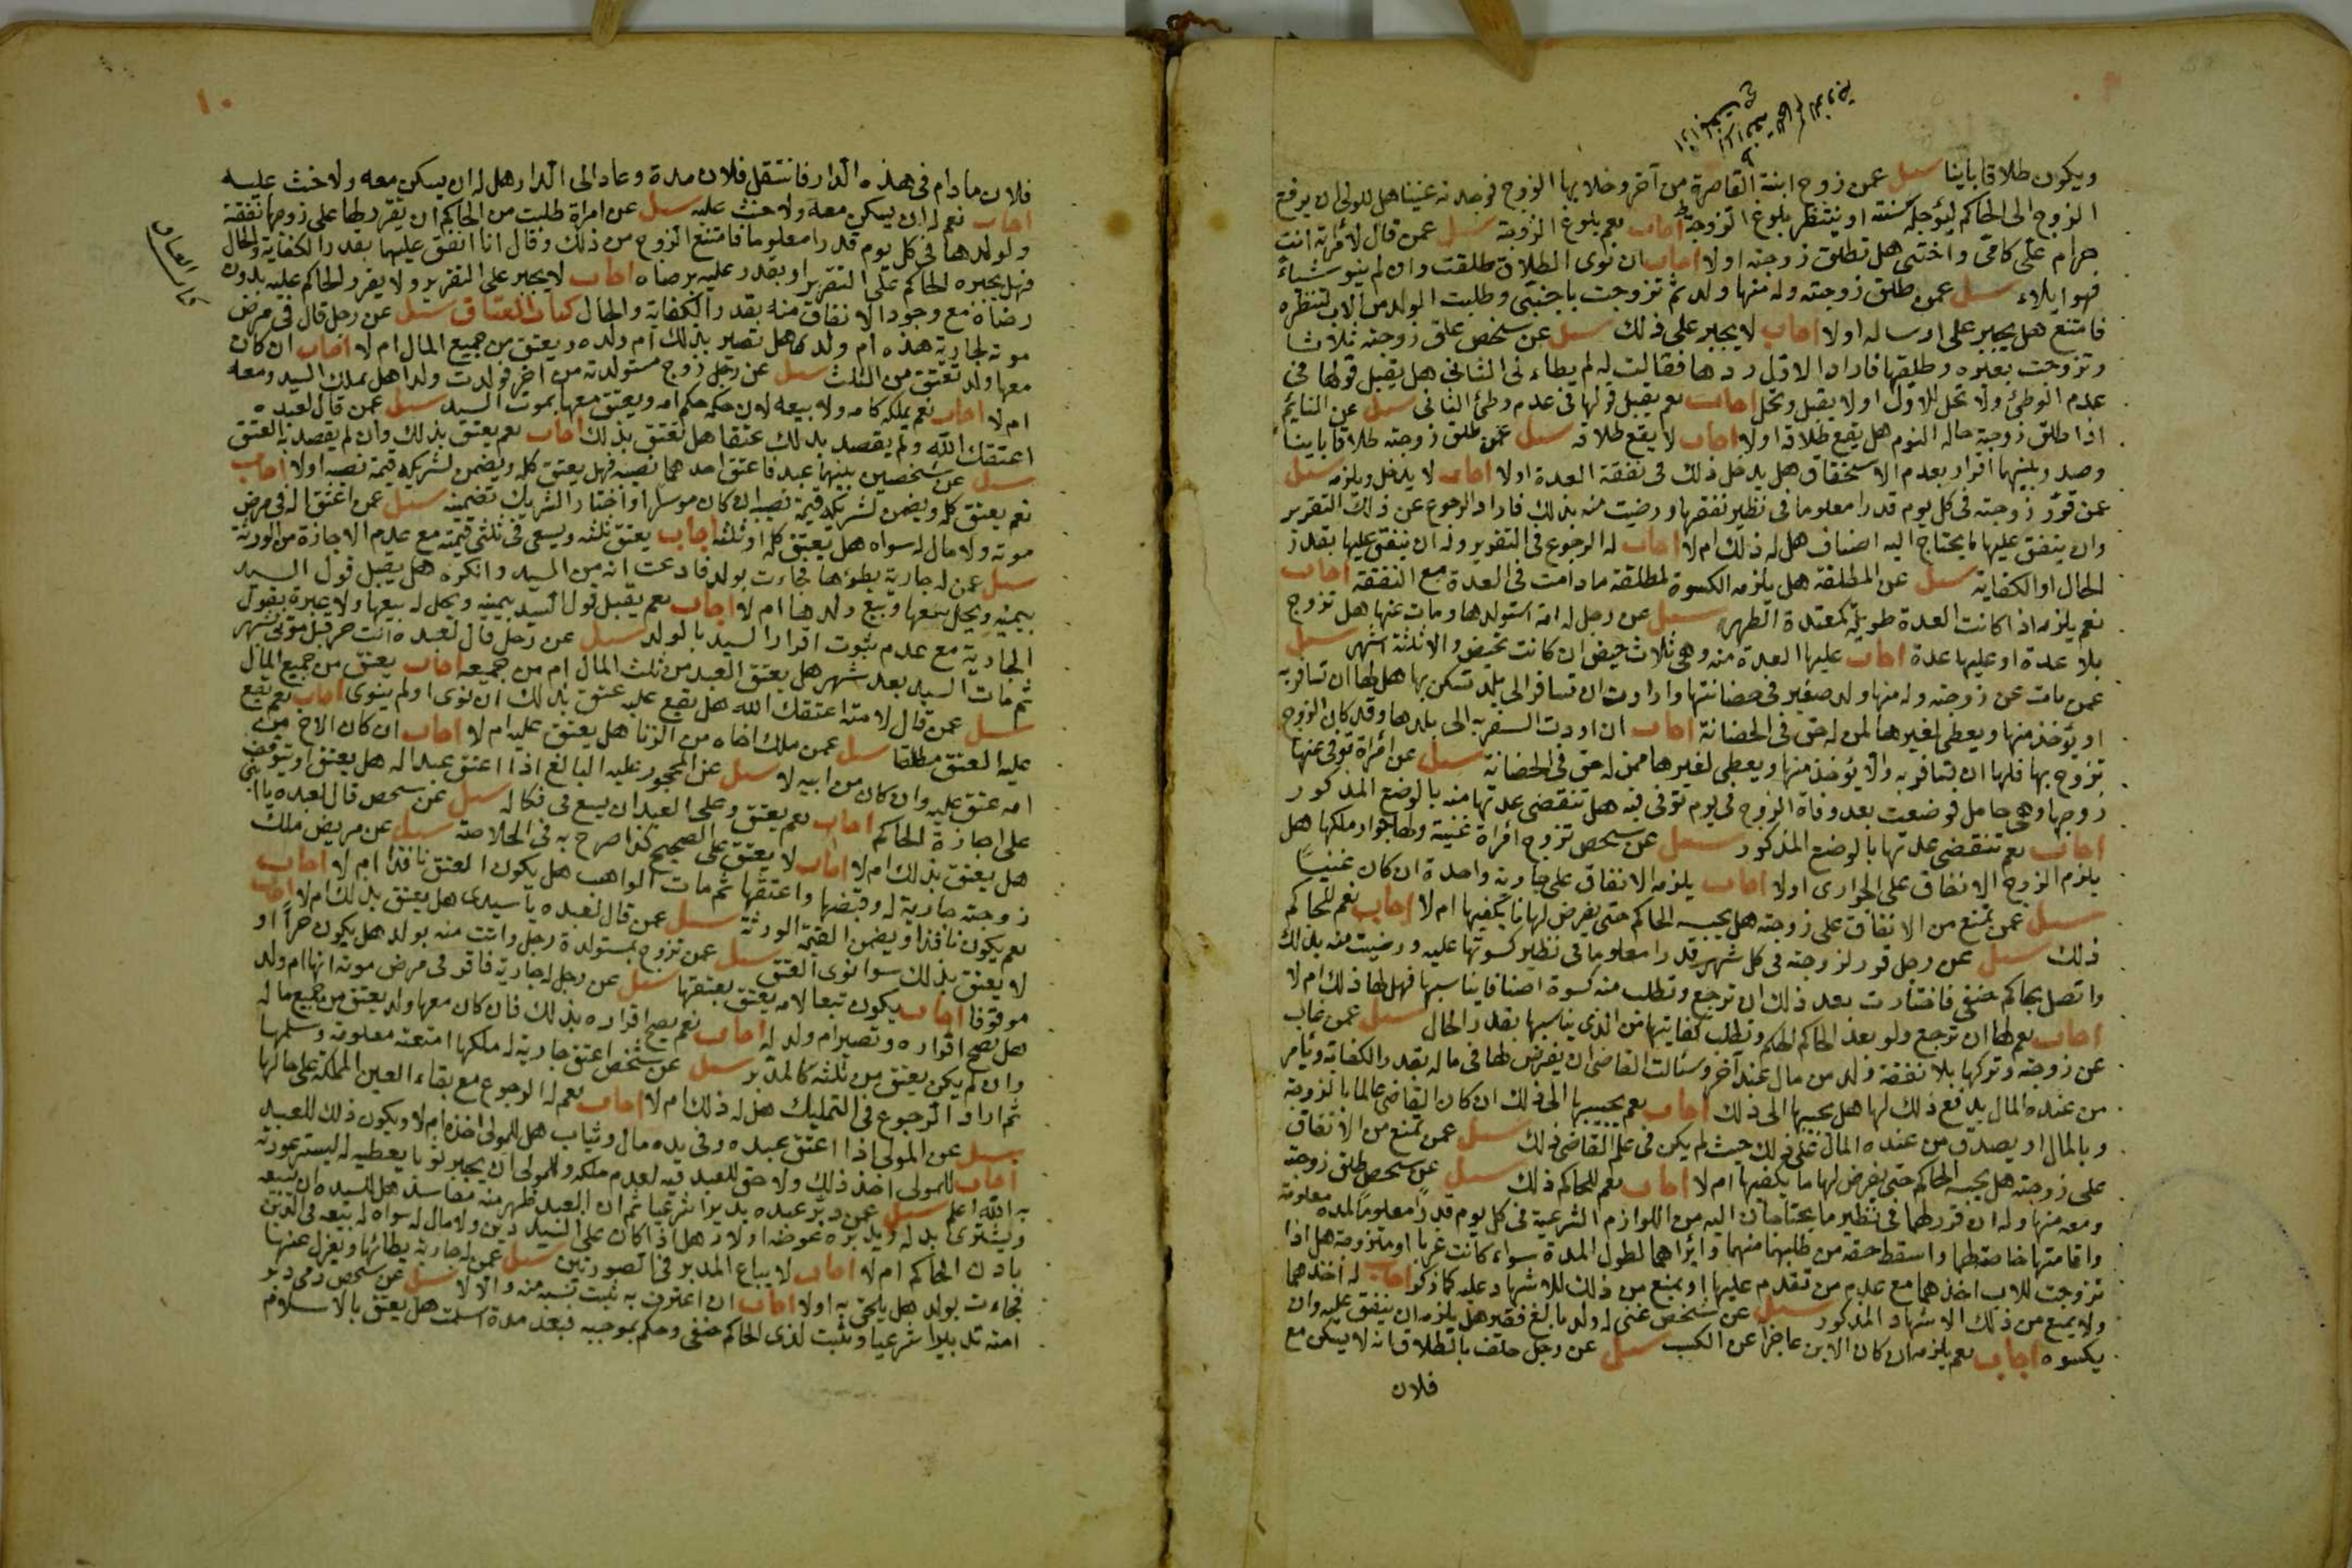 ويكون طلاقا باينا سيل عمن زوج ابنته القاصرة من آخر وخلا بها الزوج فوجدته عنينا هل للولى ان يرفع
الزوج الى الحاكم ليؤجله سنة او ينتظر بلوغ الزوجة اجاب نعم بلوغ الزوجة سيل عمن قال لامراته انت
حرام على كامى واختى هل تطلق زوجته اولا اجاب ان نوى الطلاق طلقت وان لم ينو شياء
فهو ايلاء سيل عمن طلق زوجته وله منها ولد ثم تزوجت باجنبى وطلبت الولد من الاب لتنظره
فامتنع هل يجبر على ارساله اولا اجاب لا يجبر على ذلك سيل عن شخص علق زوجته ثلاثا
وتزوجت بغيره وطلقها فاراد الاول ردها فقالت له لم يطاءنى الثانى هل يقبل قولها فى
عدم الوطئ ولا تحل للاول اولا يقبل وتحل اجاب نعم يقبل قولها فى عدم وطئ الثانى سيل عن النائم
اذا طلق زوجته حاله النوم هل يقع طلاقه اولا اجاب لا يقع طلاقه سيل عمن طلق زوجته طلاقا باينا
وصدر بينهما اقرار بعدم الاستحقاق هل يدخل ذلك فى نفقة العدة اولا اجاب لا يدخل ويلزمه سيل
عمن قرر زوجته فى كل يوم قدرا معلوما فى نظير نفقتها ورضيت منه بذلك فاراد الرجوع عن ذلك التقرير
وان ينفق عليها ما يحتاج اليه اصناف هل له ذلك ام لا اجاب له الرجوع فى التقرير وله ان ينفق عليها بقدر
الحال او الكفاية سيل عن المطلقة هل يلزمه الكسوة لمطلقته ما دامت فى العدة مع النفقة اجاب
نعم يلزمه اذا كانت العدة طويلة كمعتدة الطهر سيل عن رجل له امة استولدها ومات عنها هل تزوج
بلا عدة او عليها عدة اجاب عليها العدة منه وهى ثلاث حيض ان كانت تحيض والا ثلثة اشهر سيل
عمن مات عن زوجته وله منها ولد صغير فى حضانتها وارادت ان تسافر الى بلد تسكن بها هل لها ان تسافر به
او يؤخذ منها ويعطى لغيرها لمن له حق فى الحضانة اجاب ان اردت السفر به الى بلدها وقد كان الزوج
تزوج بها فلها ان تسافر به والا يؤخذ منها ويعطى لغيرها ممن له حق فى الحضانة سيل عن امراة توفى عنها
زوجها وهى حامل فوضعت بعد وفاة الزوج فى يوم توفى فيه هل تنقضى عدتها منه بالوضع المذكور
اجاب نعم تنقضى عدتها بالوضع المذكور سيل عن شخص تزوج امراة غنية ولها جوار ملكها هل
يلزم الزوج الانفاق على الجوارى اولا اجاب يلزمه الانفاق على جارية واحدة ان كان غنيا
سيل عمن تمنع من الانفاق على زوجته هل يحبسه الحاكم حتى يفرض لها ما يكفيها ام لا اجاب نعم للحاكم
ذلك سيل عن رجل قرر لزوجته فى كل شهر قدرا معلوما فى نظير كسوتها عليه ورضيت منه بذلك
واتصل بحاكم حنفى فاختارت بعد ذلك ان ترجع وتطلب منه كسوة اصنافا يناسبها فهل لها ذلك ام لا
اجاب نعم لها ان ترجع ولو بعد الحاكم لحكم وتطلب كفايتها من الذى يناسبها بقدر الحال سيل عمن غاب
عن زوجته وتركها بلا نفقة وله من مال عند آخر وسئالت القاضى ان يفرض لها فى ماله بقدر الكفاية ويامر
من عنده المال بدفع ذلك لها هل يجيبها الى ذلك اجاب نعم يجيبها الى ذلك ان كان القاضى عالما بالزوجة
وبالمال او يصدق من عنده المال على ذلك حيث لم يكن فى علم القاضى ذلك سيل عمن تمنع من الانفاق
على زوجته هل يحبسه الحاكم حتى يفرض لها ما يكفيها ام لا اجاب نعم للحاكم ذلك سيل عن شخص طلق زوجته
ومعه منها وله ان قرر لهما فى نظير ما يحتاجان اليه من اللوازم الشرعية فى كل يوم قدرا معلوما لمدة معلومة
واقامتها خاصة لهما واسقط حقه من طلبهما منهما وابراهما لطول المدة سواء كانت عزبا او متزوجة هل اذا
تزوجت للاب اخذهما مع عدم من تقدم عليها او يمنع من ذلك للاشهاد عليه كما ذكر اجاب له اخذهما
ولا يمنع من ذلك الاشهاد المذكور سيل عن شخص غنى له ولد بالغ فقير هل يلزمه ان ينفق عليه وان
يكسوه اجاب نعم يلزمه ان كان الابن عاجزا عن الكسب سيل عن رجل حلف بالطلاق انه لا يسكن مع
فلان
١٠
كتاب العتاق
فلان ما دام فى هذه الدار فانتقل فلان مدة وعاد الى الدار هل له ان يسكن معه ولا حنث عليه
اجاب نعم له ان يسكن معه ولا حنث عليه سيل عن امراة طلبت من الحاكم ان يقرر لها على زوجها نفقة
ولولدهما فى كل يوم قدرا معلوما فامتنع الزوج من ذلك وقال انا انفق عليهما بقدر الكفاية والحال
فهل يجبره الحاكم على التقرير او يقدر عليه برضاه اجاب لا يجبر على التقرير ولا يقرر الحاكم عليه بدون
رضاه مع وجود الانفاق منه بقدر الكفاية والحال كتاب العتاق سيل عن رجل قال فى مرض
موته لجارية هذه ام ولدى هل تصير بذلك ام ولده ويعتق من جميع المال ام لا اجاب ان كان
معها ولد تعتق من الثلث سيل عن رجل زوج مستولدته من اخر فولدت ولدا هل يملك السيد ومعه
ام لا اجاب نعم يملكه كامه ولا بيعه لان حكمه حكم امه ويعتق معها بموت السيد سيل عمن قال لعبده
اعتقك الله ولم يقصد بذلك عتقا هل تعتق بذلك اجاب نعم يعتق بذلك وان لم يقصد به العتق
سيل عن شخصين بينهما عبد فاعتق احدهما نصيبه فهل يعتق كله ويضمن لشريكه قيمة نصيبه اولا اجاب
نعم يعتق كله ويضمن لشريكه قيمة نصيبه ان كان موسرا او اختار الشريك تضمينه سيل عمن اعتق اله فى مرض
موته ولا مال له سواه هل يعتق كله او ثلثه اجاب يعتق ثلثه ويسعى فى ثلثى قيمته مع عدم الاجازة من الورثة
سيل عمن له جارية يطؤها فجاءت بولد فادعت انه من السيد وانكره هل يقبل قول السيد
بيمينه ويحل بيعها وبيع ولدها ام لا اجاب نعم يقبل قول السيد بيمينه ويحل له بيعها ولا عبرة بقول
الجارية مع عدم ثبوت اقرار السيد بالولد سيل عن رجل قال لعبده انت حر قبل موتى بشهر
ثم مات السيد بعد شهر هل يعتق العبد من ثلث المال ام من جميعه اجاب يعتق من جميع المال
سيل عمن قال لامته اعتقك الله هل يقع عليه عتق بذلك ان نوى او لم ينوى اجاب نعم يقع
عليه العتق مطلقا سيل عمن ملك اخاه من الزنا هل يعتق عليه ام لا اجاب ان كان الاخ من
امه عتق عليه وان كان من ابيه لا سيل عن المحجور عليه البالغ اذا اعتق عبدا له هل يعتق او يتوقف
على اجازة الحاكم اجاب نعم يعتق وعلى العبد ان يسع فى فكاله سيل عن شخص قال لعبده يا ابنى
هل يعتق بذلك ام لا اجاب لا يعتق على الصحيح كذا صرح به فى الخلاصة سيل عن مريض ملك
زوجته جارية له وقبضها واعتقها ثم مات الواهب هل يكون العتق نافذا ام لا اجاب
نعم يكون نافذا ويضمن القيمة الورثة سيل عمن قال لعبده يا سيدى هل يعتق بذلك ام لا اجاب
لا يعتق بذلك سوا نوى العتق سيل عمن تزوج بمستولدة رجل واتت منه بولد هل يكون حرا او
موقوفا اجاب يكون تبعا لامه يعتق بعتقها سيل عن رجل له جارية فاقر فى مرض موته انها ام ولد
هل يصح اقراره وتصير ام ولد له اجاب نعم يصح اقراره بذلك فان كان معها ولد يعتق من جميع ماله
وان لم يكن يعتق من ثلثه كالمدبر سيل عن شخص اعتق جارية له ملكها امتعة معلومة وسلمها
ثم اراد الرجوع فى التمليك هل له ذلك ام لا اجاب نعم له الرجوع مع بقاء العين المملكة على حالها
سيل عن المولى اذا اعتق عبده وفى يده مال وثياب هل للمولى اخذه ام لا ويكون ذلك للعبد
اجاب للمولى اخذ ذلك ولا حق للعبد فيه لعدم ملكه وللمولى ان يجبر ثوبا يعطيه له ليستر عورته
به الله اعلم سيل عمن دبر عبده تدبيرا شرعيا ثم ان العبد ظهر منه مفاسد هل للسيد ان يبيعه
ويشترى بدله ويدبره عوضه اولا وهل اذا كان على السيد دين ولا مال له سواه له بيعه فى الدين
باذن الحاكم ام لا اجاب لا يباع المدبر فى الصورتين سيل عمن له جارية يطائها ويعزل عنها
فجاءت بولد هل يلحق به اولا اجاب ان اعترف به ثبت نسبه منه والا لا سيل عن شخص ذمى دبر
امته تدبيرا شرعيا وثبت لذى الحاكم حنفى وحكم بموجبه فبعد مدة اسلمت هل يعتق بالاسلام